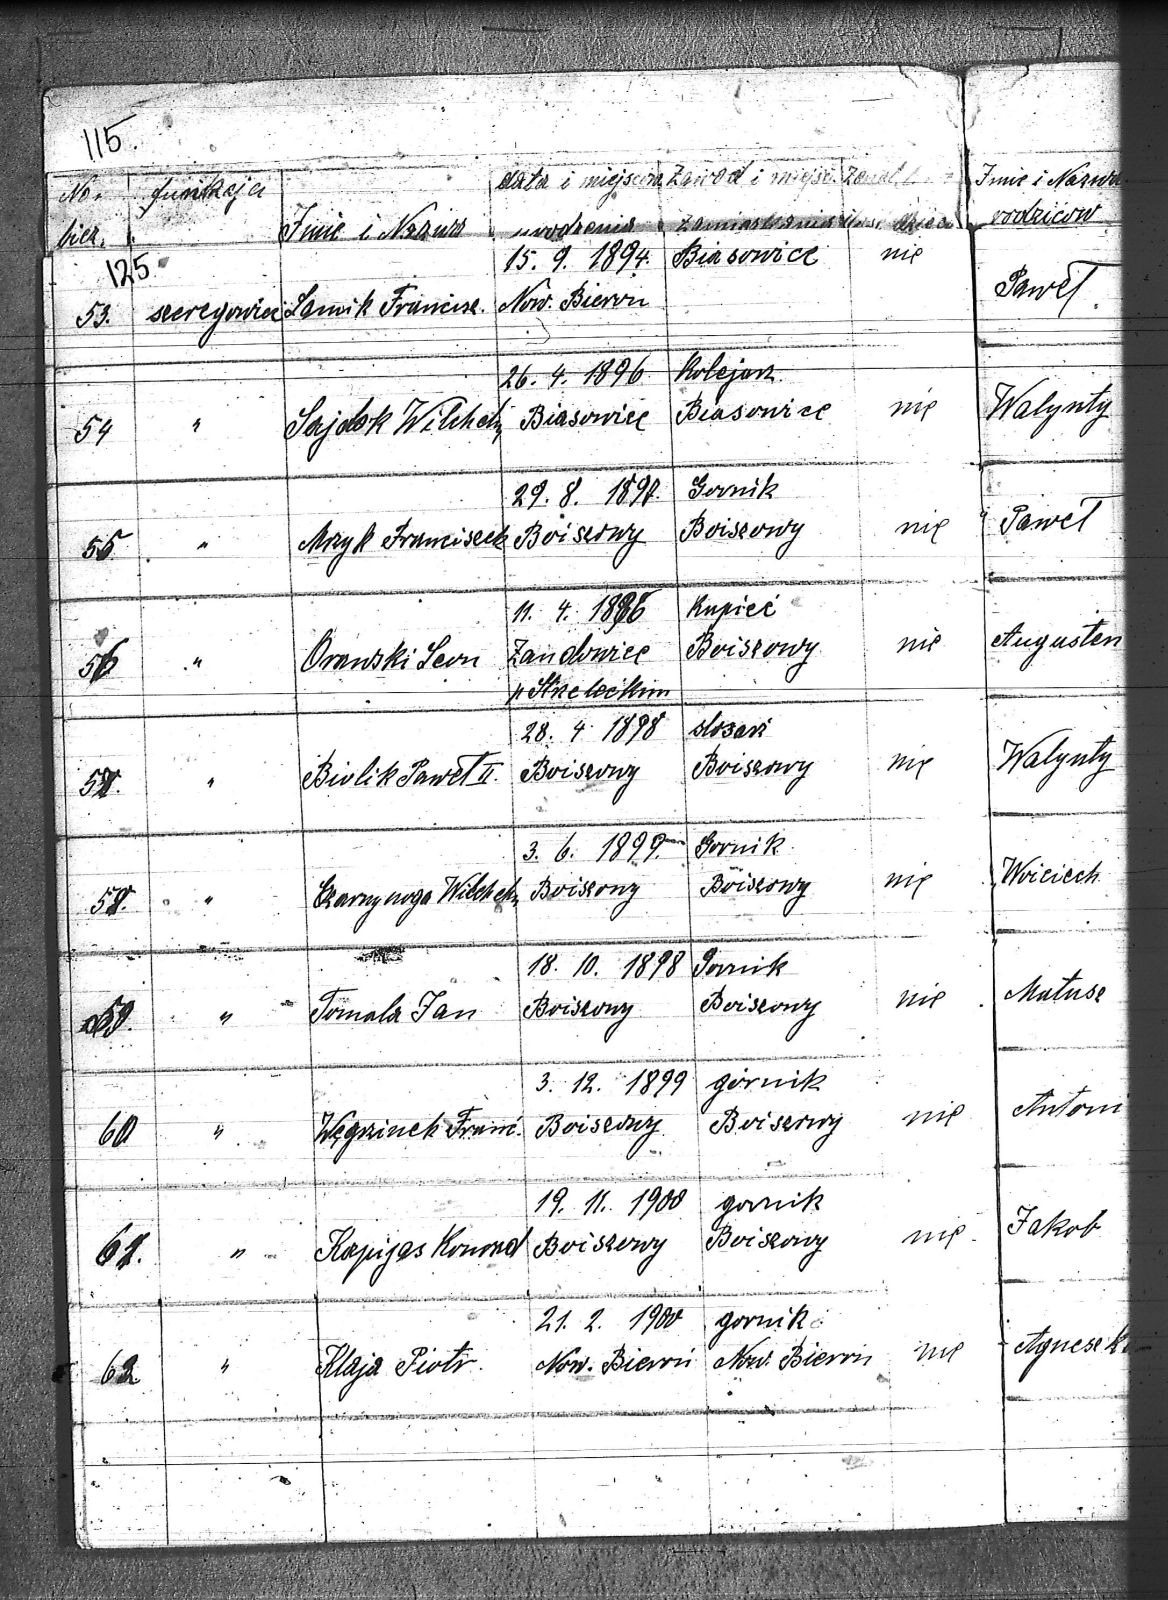 115.
No. funkcja data i miejscow Zawod i miejsc. Zonat Imie i Nazw
biez. Imie i Nazwis urodzenia zamieszkania dzieci rodzicow
125.
15. 9. 1894. Biasowice nie
53. szeregowiec Lamik Francisz. Now. Bierun Paweł
26. 4. 1896 Kolejarz
54 " Sajdok Wilhelm Biasowice Biasowice nie Walynty
29. 8. 1898. Gornik
55 " Mrzyk Franciszek Boiszowy Boiszowy nie Paweł
11. 4. 1896 Kupieć
56 " Orawski Leon Zandowice Boiszowy nie Augusten
p Strzeleckim
28. 4 1898 slosarz
57. " Biolik Paweł II. Boiszowy Boiszowy nie Walynty
3. 6. 1899. Gornik
58. " Czarnynoga Wilhelm Boiszowy Boiszowy nie Woiciech
18. 10. 1898 Gornik
59. " Tomala Jan Boiszowy Boiszowy nie Matusz
3. 12. 1899 górnik
60 " Węgrzinek Franc. Boiszowy Boiszowy nie Antoni
19. 11. 1900 gornik
61. " Kapijas Konrad Boiszowy Boiszowy nie Jakob
21. 2. 1900 gornik
62 " Klaja Piotr. Now. Bieruń Now. Bierun nie Agneszk